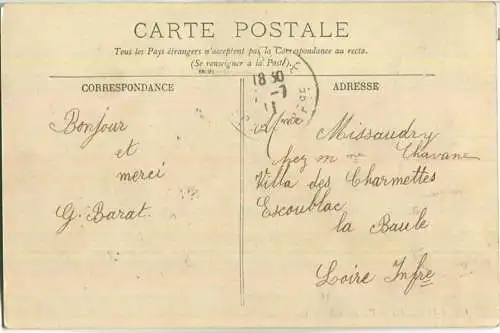 CARTE POSTALE
Tous les Pays étrangers n'acceptent pas la Correspondance au recto.
(Se renseigner à la Poste).
CORRESPONDANCE
ADRESSE
18 30
Bonjour
et
merci
G. Barat.
Mme Missaudry
chez mme Chavane
Villa des Charmettes
Escoublac
la Baule
Loire Infre